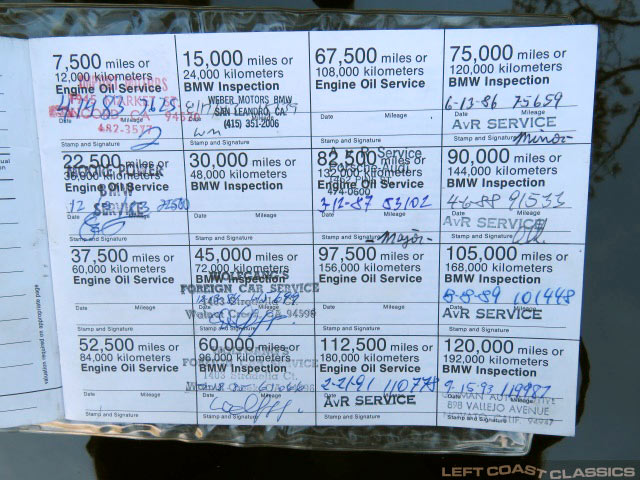 7,500 miles or
12,000 kilometers
Engine Oil Service
Date Mileage
Stamp and Signature
2
15,000 miles or
24,000 kilometers
BMW Inspection
WEBER MOTORS BMW
SAN LEANDRO, CA.
(415) 351-2006
Date
Stamp and Signature
67,500 miles or
108,000 kilometers
Engine Oil Service
Date Mileage
Stamp and Signature
75,000 miles or
120,000 kilometers
BMW Inspection
6-13-86 75659
Date Mileage
AVR SERVICE
Stamp and Signature
Minor
22,500 miles or
36,000 kilometers
Engine Oil Service
MOORE POWER
BMW
SERVICE
22500
Date Mileage
Stamp and Signature
30,000 miles or
48,000 kilometers
BMW Inspection
Date Mileage
Stamp and Signature
82,500 miles or
132,000 kilometers
Engine Oil Service
474-0600
3-12-87 83102
Date Mileage
Stamp and Signature
-Major-
90,000 miles or
144,000 kilometers
BMW Inspection
4-6-88 91533
Date Mileage
AVR SERVICE
Stamp and Signature
37,500 miles or
60,000 kilometers
Engine Oil Service
Date Mileage
Stamp and Signature
45,000 miles or
72,000 kilometers
BMW Inspection
WOLFGANG'S
FOREIGN CAR SERVICE
Walnut Creek, CA 94598
Stamp and Signature
97,500 miles or
156,000 kilometers
Engine Oil Service
Date Mileage
Stamp and Signature
105,000 miles or
168,000 kilometers
BMW Inspection
8-8-89 101448
Date Mileage
AVR SERVICE
Stamp and Signature
52,500 miles or
84,000 kilometers
Engine Oil Service
Date Mileage
Stamp and Signature
60,000 miles or
96,000 kilometers
BMW Inspection
FOREIGN CAR SERVICE
Stamp and Signature
112,500 miles or
180,000 kilometers
Engine Oil Service
2-21-91 110778
Date Mileage
AVR SERVICE
Stamp and Signature
120,000 miles or
192,000 kilometers
BMW Inspection
9-15-93 119987
Date Mileage
898 VALLEJO AVENUE
Stamp and Signature
valuation required on appropriate page
LEFT COAST CLASSICS